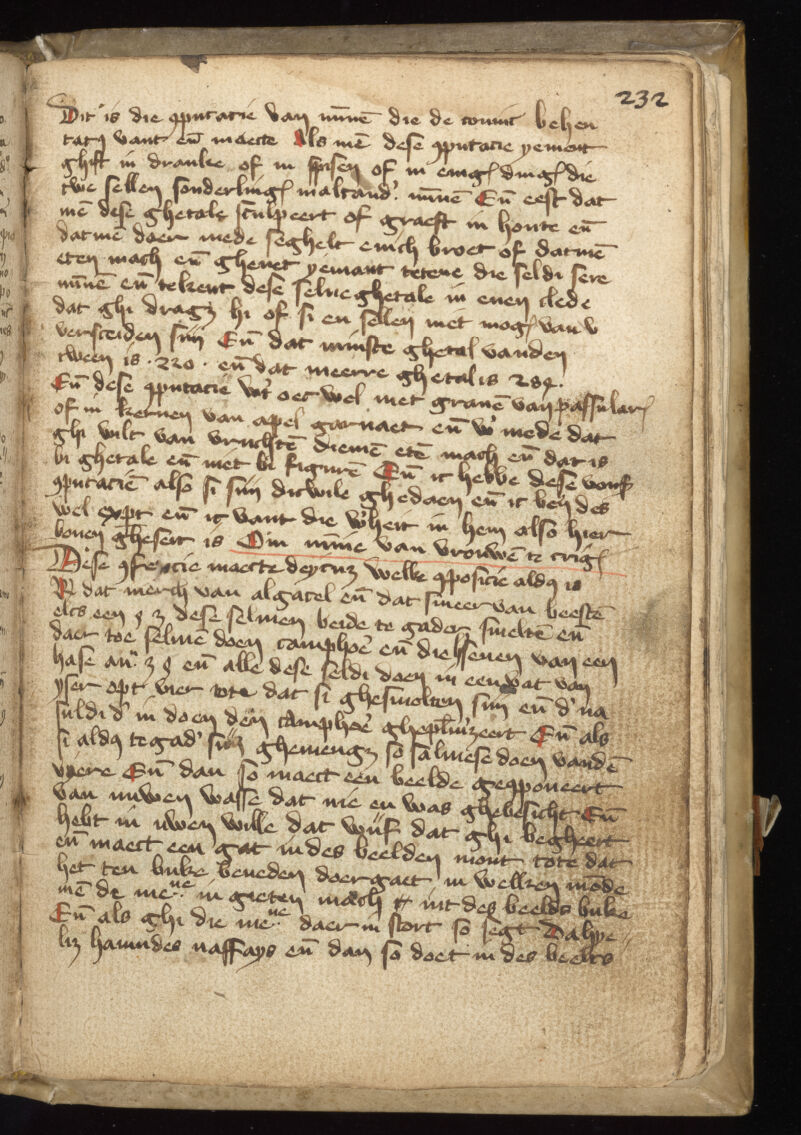 232
Dit is die ꝯputacie van mīnē die de comit behen
tatꝫ vant eñ maecte Als mē dese ꝯputacie yement
ghift in dranke of in spisen of in enigꝭ dingꝭ die
twe sellen sonderlingꝭ malcand' mīnē Eñ eest dat
mē dese ghetale sculpeert of graeft in houte eñ
datmē daer mede seghelt enich broet of datmē
eten mach eñ ghevet yemant tetene die seldi sere
mīnē eñ tekent dese selve ghetale in enen clede
dat ghi dragꝫ hi of si en sellen niet mogꝭ van v
versceiden sijn Eñ dat minste ghetal vanden
tween is .220. eñ dat meerre ghetal is 284.
Eñ dese ꝯputacie w't oec wel met granē van passularꝭ
of in kernen van apel garnaet eñ w' mede dat
ghi wilt van vruchtē diemē etē mach eñ dat is
bi ghetale eñ niet bi figurē Eñ ic hebbe dese vorsꝭ
ꝯputaciē also si sijn dicwile ghedaen eñ ic ben des
wel expt eñ ic vant die w'heit in hem also hier
boven gheseit is Om mīne van vrouwē te crigꝭ
Dese ꝯfexcie maecte deycuz welke ꝯposicie aldꝯ is
R dat merch van algatel eñ dat smeer van beestē
elcs een ℥ ʒ dese selmen beide te gader smeltē eñ
daer toe selmē doen camphoē eñ die hsenen van een
hase an. ʒ ℥ eñ alle dese seldi doen in een vat van
yser opt vier tote dat si ghesmolten sijn eñ d'na
suldi d' in doen den camphoē ghepluizeert Eñ als
si aldꝯ tegad' sijn ghemengꝫ so salmese doen vandē
vyere Eñ dan so maect een beelde geꝯponeert
van nuwen wasse dat nie en was ghebesicht Eñ
hebt in uwen wille dat wijf dat ghi begheert
eñ maect een gat in des beelden mont tote dat
het ten buke beneden doergaet in welken mōde
mē de me in gieten mach int des beelds buke
Eñ als ghi die me daer in stort so segt Dahye
liz hanindes naffays eñ dan so doet in des beelts